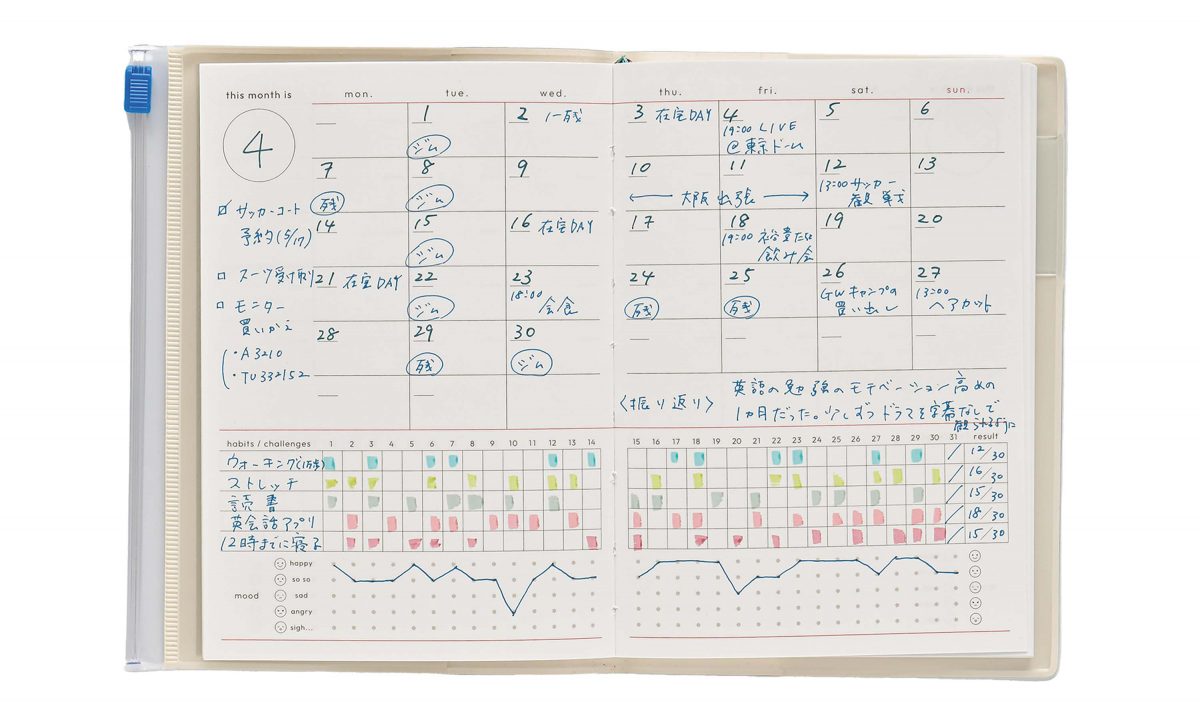 this month is
4
mon. tue. wed. thu. fri. sat. sun.
1 2 3 在宅DAY 4 5 6
ジム
19:00 LIVE
@東京ドーム
7 8 9 10 11 12 13
残 ジム
←大阪出張→
13:00 サッカー
観戦
14 15 16 在宅DAY 17 18 19 20
ジム
19:00
飲み会
21 在宅DAY 22 23 24 25 26 27
ジム
18:00
会食
残 残
GWキャンプの
買い出し
13:00
ヘアカット
28 29 30
残 ジム
サッカーコート
予約(5/17)
スーツ受け取り
モニター
買いかえ
・A3210
・TU332152
〈振り返り〉
英語の勉強のモチベーション高めの
1ヵ月だった。少しずつドラマを字幕なしで
観られるように
habits / challenges 1 2 3 4 5 6 7 8 9 10 11 12 13 14 15 16 17 18 19 20 21 22 23 24 25 26 27 28 29 30 31 result
ウォーキング(1万歩) 12/30
ストレッチ 16/30
読書 15/30
英会話アプリ 18/30
12時までに寝る 15/30
mood
happy
so so
sad
angry
sigh...